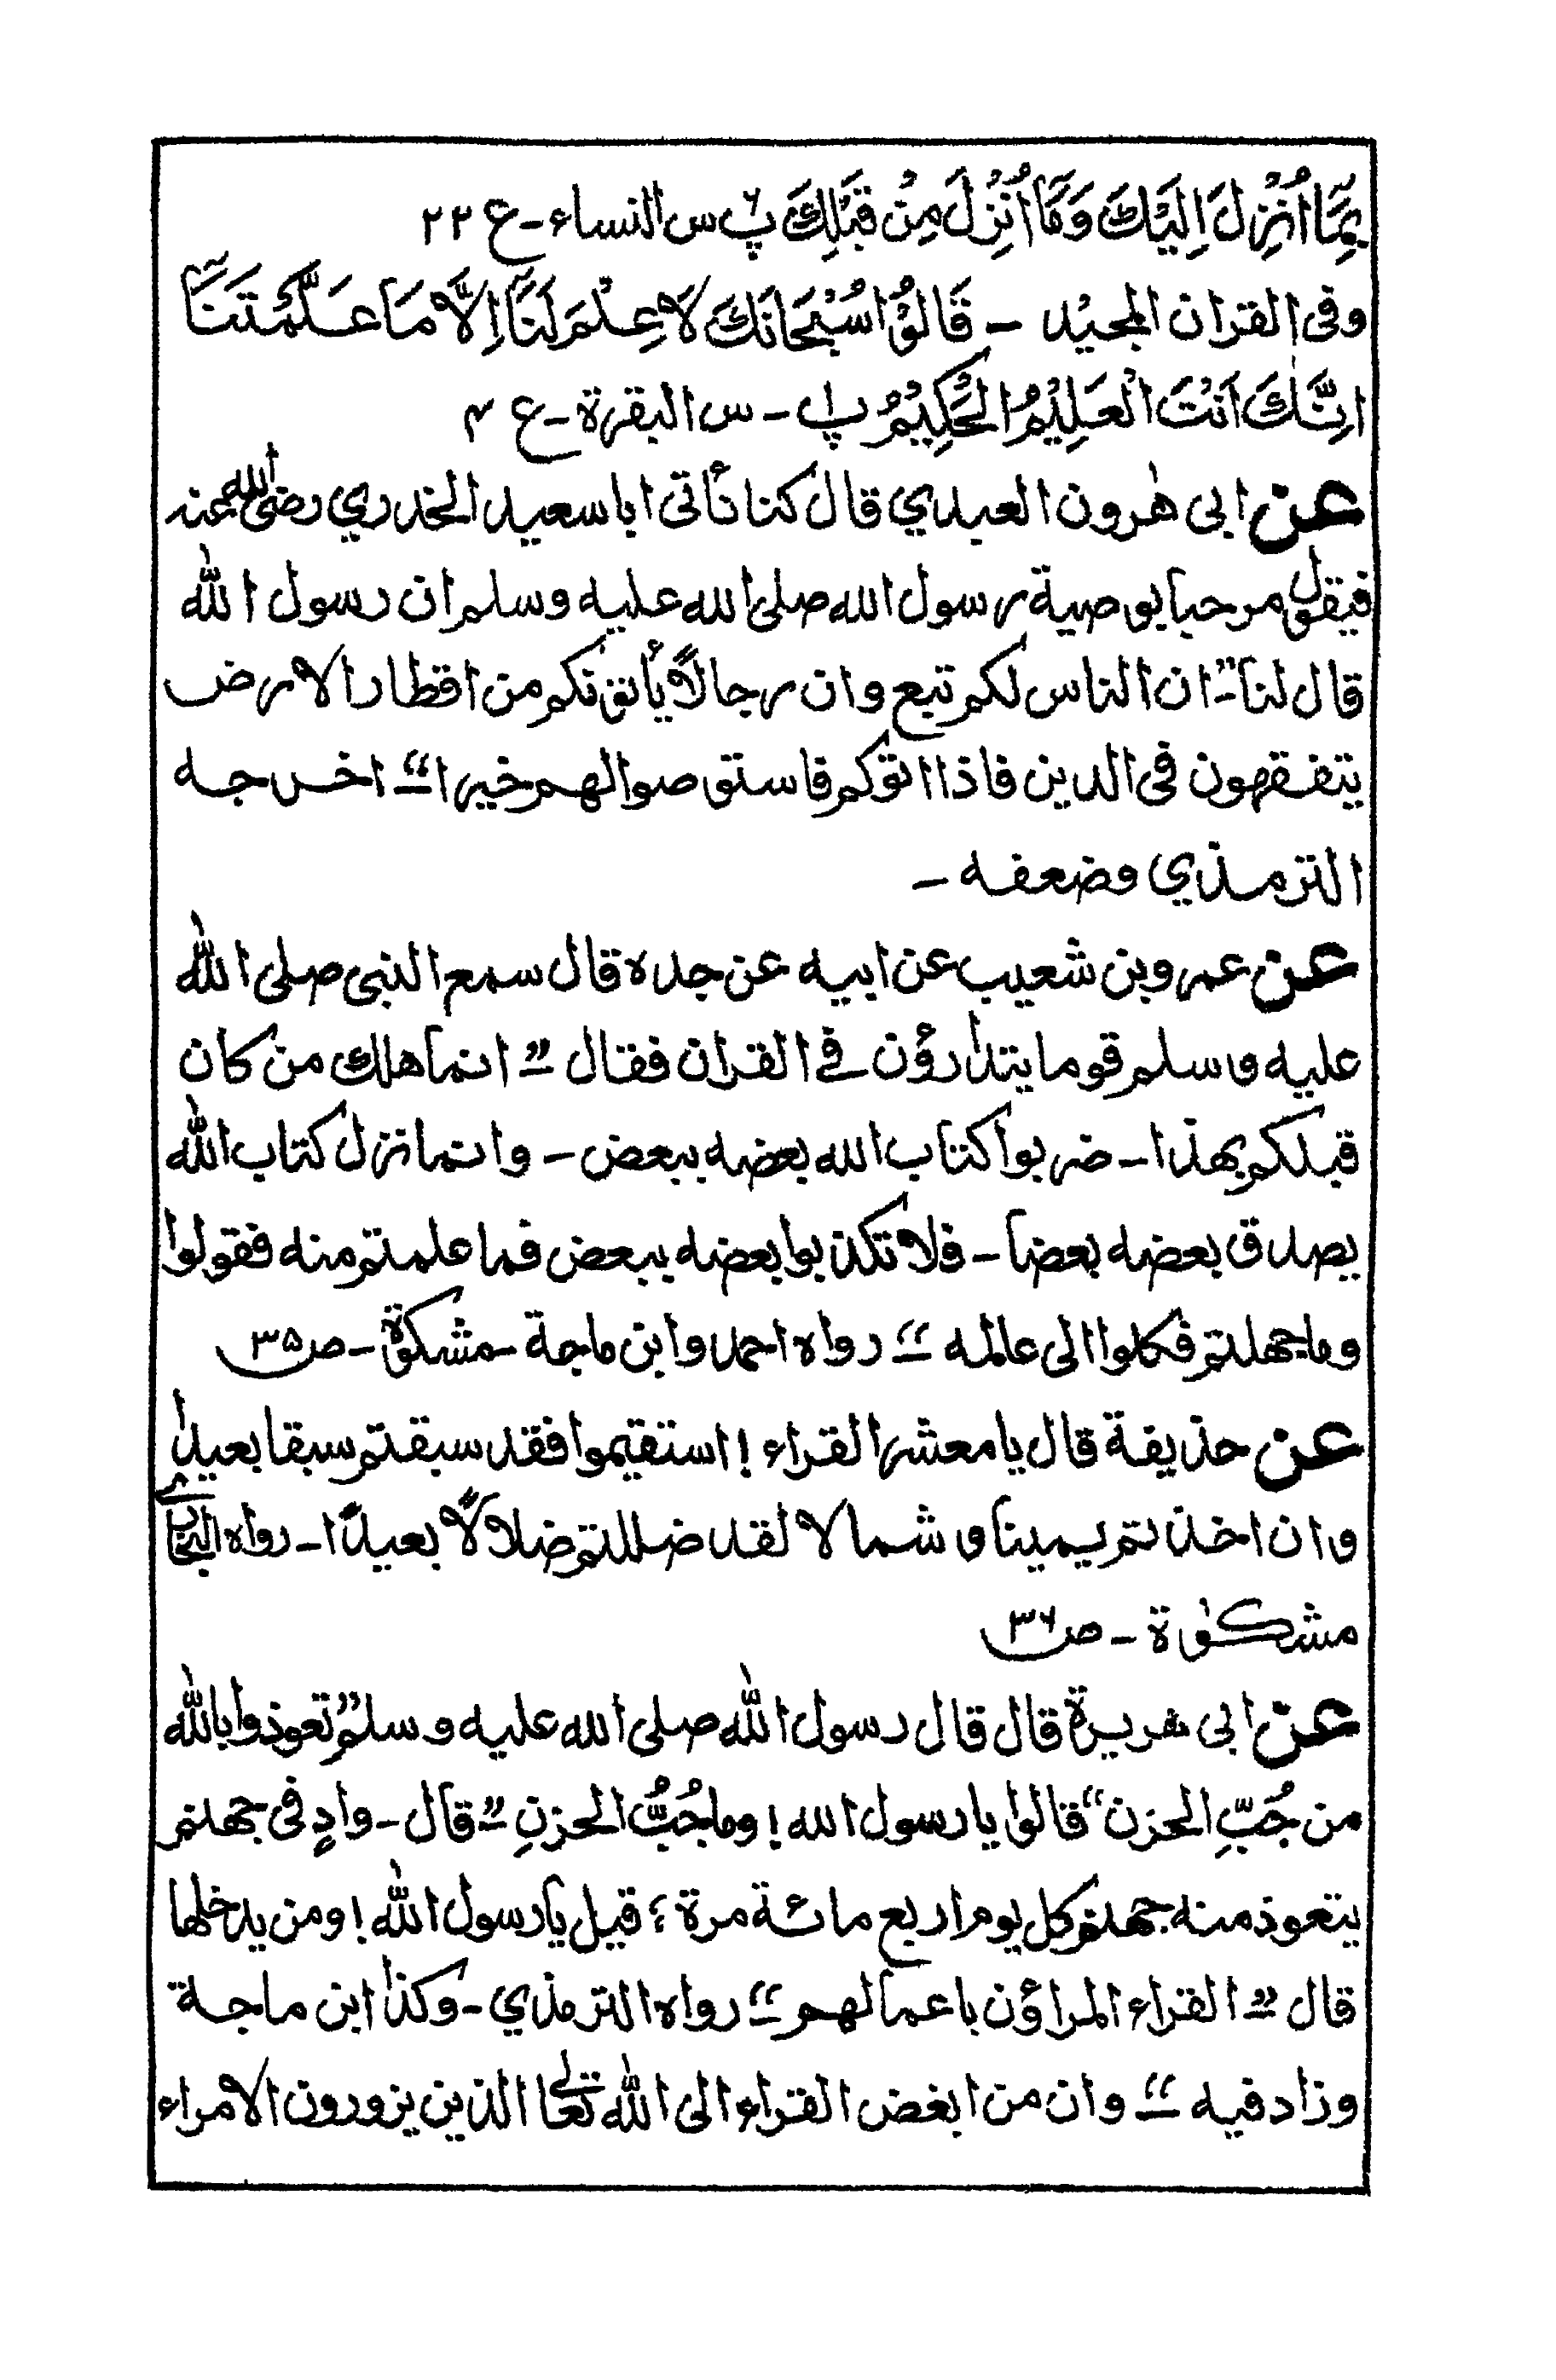 بِمَآ اُنْزِلَ اِلَيْكَ وَمَآ اُنْزِلَ مِنْ قَبْلِكَ پ ۶ س النساء ـ ع ۲۳
وفی القران المجیْد ـ قَالُوْا سُبْحَانَكَ لَا عِلْمَ لَنَآ اِلَّا مَا عَلَّمْتَنَآ
اِنَّكَ اَنْتَ الْعَلِيْمُ الْحَكِيْمُ پ ۱ ـ س البقرة ـ ع ۴
عن ابی هٰرون العبدي قال كنا نأتی ابا سعید الخدري رضی الله عنه
فیقول مرحبا بوصیة رسول الله صلی الله علیه وسلم ان رسول الله
قال لنا ” ان الناس لكم تبع وان رجالاً یأتونكم من اقطار الارض
یتفقهون فی الدین فاذا اتوكم فاستوصوا لهم خیرا “ اخرجه
الترمذي وضعفه ـ
عن عمرو بن شعیب عن ابیه عن جده قال سمع النبی صلی الله
علیه وسلم قوما یتدارؤن فی القران فقال ” انما هلك من كان
قبلكم بهذا ـ ضربوا كتاب الله بعضه ببعض ـ وانما نزل كتاب الله
یصدق بعضه بعضا ـ فلا تكذبوا بعضه ببعض فما علمتم منه فقولوا
وما جهلتم فكلوا الی عالمه “ رواه احمد وابن ماجة ـ مشكوٰة ـ ص ۳۵
عن حذیفة قال یا معشر القراء ! استقیموا فقد سبقتم سبقا بعیدا
وان اخذتم یمینا و شمالا لقد ضللتم ضلالاً بعیدًا ـ رواه البخاری
مشكوٰة ـ ص ۳۶
عن ابی هریرة قال قال رسول الله صلی الله علیه وسلم ” تعوذوا بالله
من جُبِّ الحزن “ قالوا یا رسول الله ! وما جُبُّ الحزنِ ” قال ـ وادٍ فی جهنم
یتعوذ منه جهنم كل یوم اربع مائة مرة ؛ قیل یا رسول الله ! ومن یدخلها
قال ” القراء المراؤن باعمالهم “ رواه الترمذي ـ وكذا ابن ماجة
وزاد فیه “ وان من ابغض القراء الی الله تعالی الذین یزورون الامراء